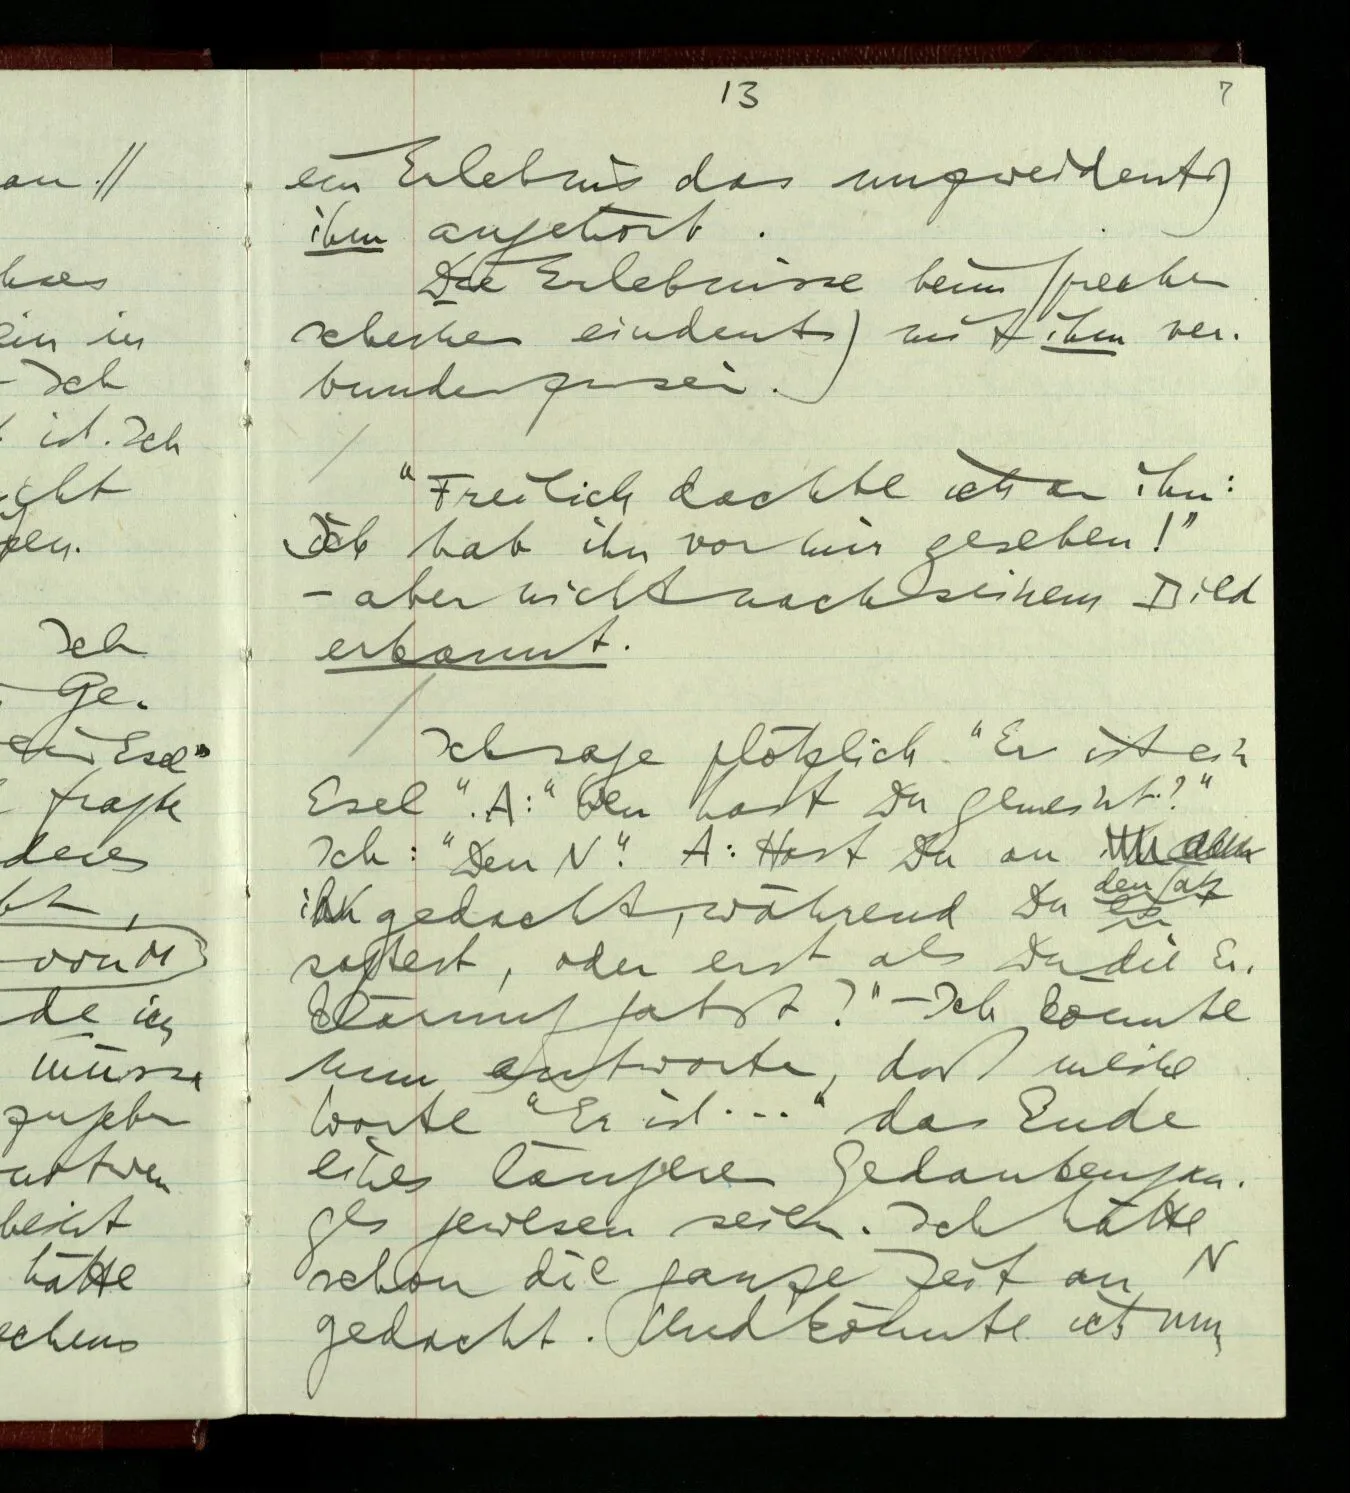 13 7
an. //
ein Erlebnis das unzweideutig
ihm angehört.
Die Erlebnisse beim Sprechen
schienen eindeutig mit ihm ver-
bunden zu sein.
"Freilich dachte ich an ihn:
Ich hab ihn vor mir gesehen!"
– aber nicht nach seinem Bild
erkannt.
Ich sage plötzlich "Er ist ein
Esel". A: "Wen hast Du gemeint?"
Ich: "Den N". A: Hast Du an
ihn gedacht, während Du
den Satz
sagtest, oder erst als Du die Er-
klärung gabst?" – Ich könnte
nun antworten, daß meine
Worte "Er ist ..." das Ende
eines längeren Gedankengan-
ges gewesen seien. Ich hätte
schon die ganze Zeit an N
gedacht. Und könnte ich nun
ein in
– Ich
ist. Ich
Ich
Ge-
ein Esel"
fragte
von N
de ich
müsse
hätte